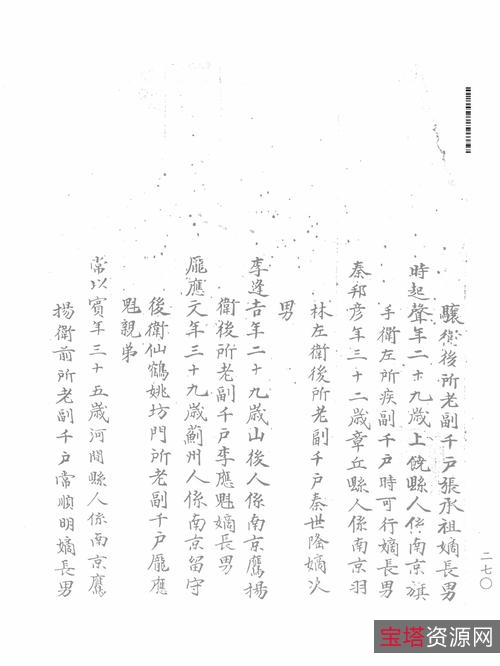 驤衛後所老副千戶張承祖嫡長男
時起聲年二十九歲上饒縣人係南京旗
手衛左所疾副千戶時可行嫡長男
秦邦彦年三十二歲章丘縣人係南京羽
林左衛後所老副千戶秦世隆嫡次
男
李逢吉年二十九歲山後人係南京鷹揚
衛後所老副千戶李應魁嫡長男
龎應元年三十九歲薊州人係南京留守
後衛仙鶴姚坊門所老副千戶龎應
魁親弟
常以賓年三十五歲河間縣人係南京鷹
揚衛前所老副千戶常順明嫡長男
二七〇
宝塔资源网